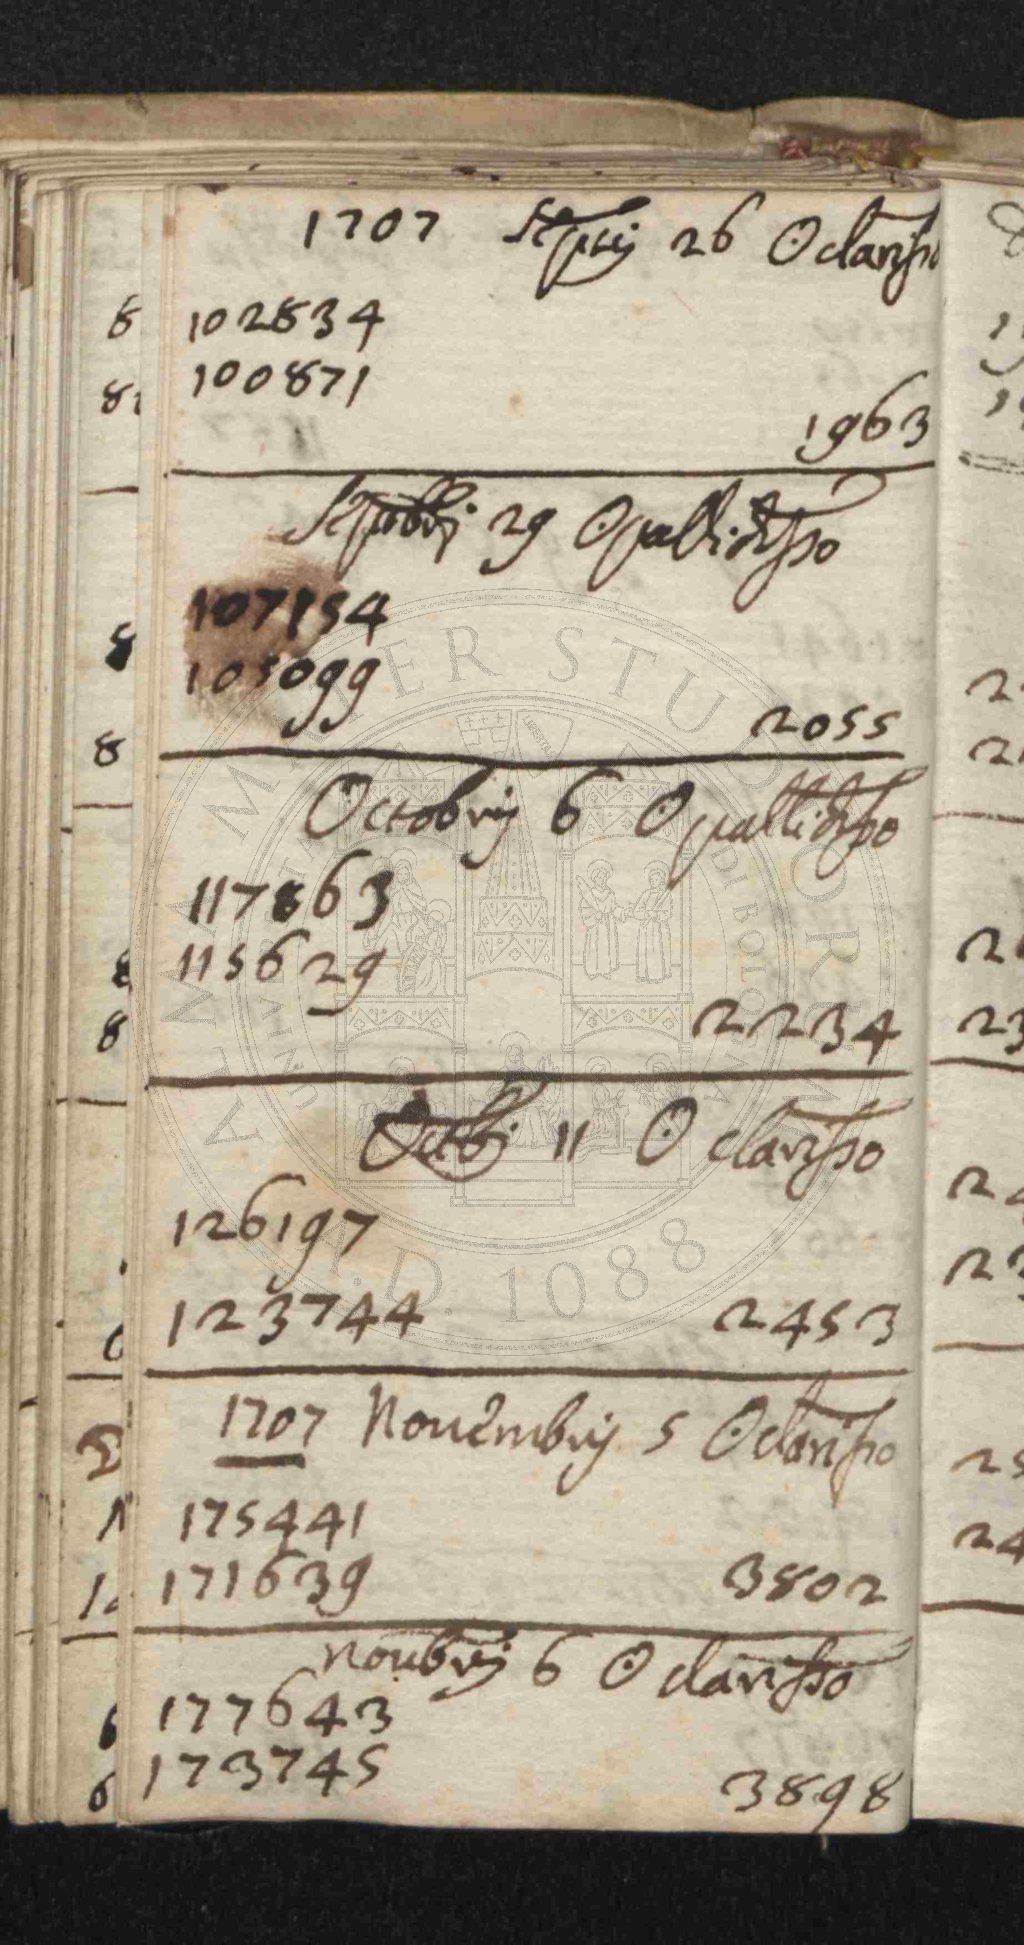 1707 Septrij 26 ☉ clarisso
102834
100871
1963
Septubrij 29 ☉ pallidisso
107154
105099
2055
Octobrij 6 ☉ pallidisso
117863
115629
2234
Octbrij 11 ☉ clarisso
126197
123744 2453
1707 Nouembrij 5 ☉ clarisso
175441
171639 3802
noubrij 6 ☉ clarisso
177643
173745
3898
ALMA MATER STUDIORUM
A.D. 1088
UNIVERSITÀ DI BOLOGNA